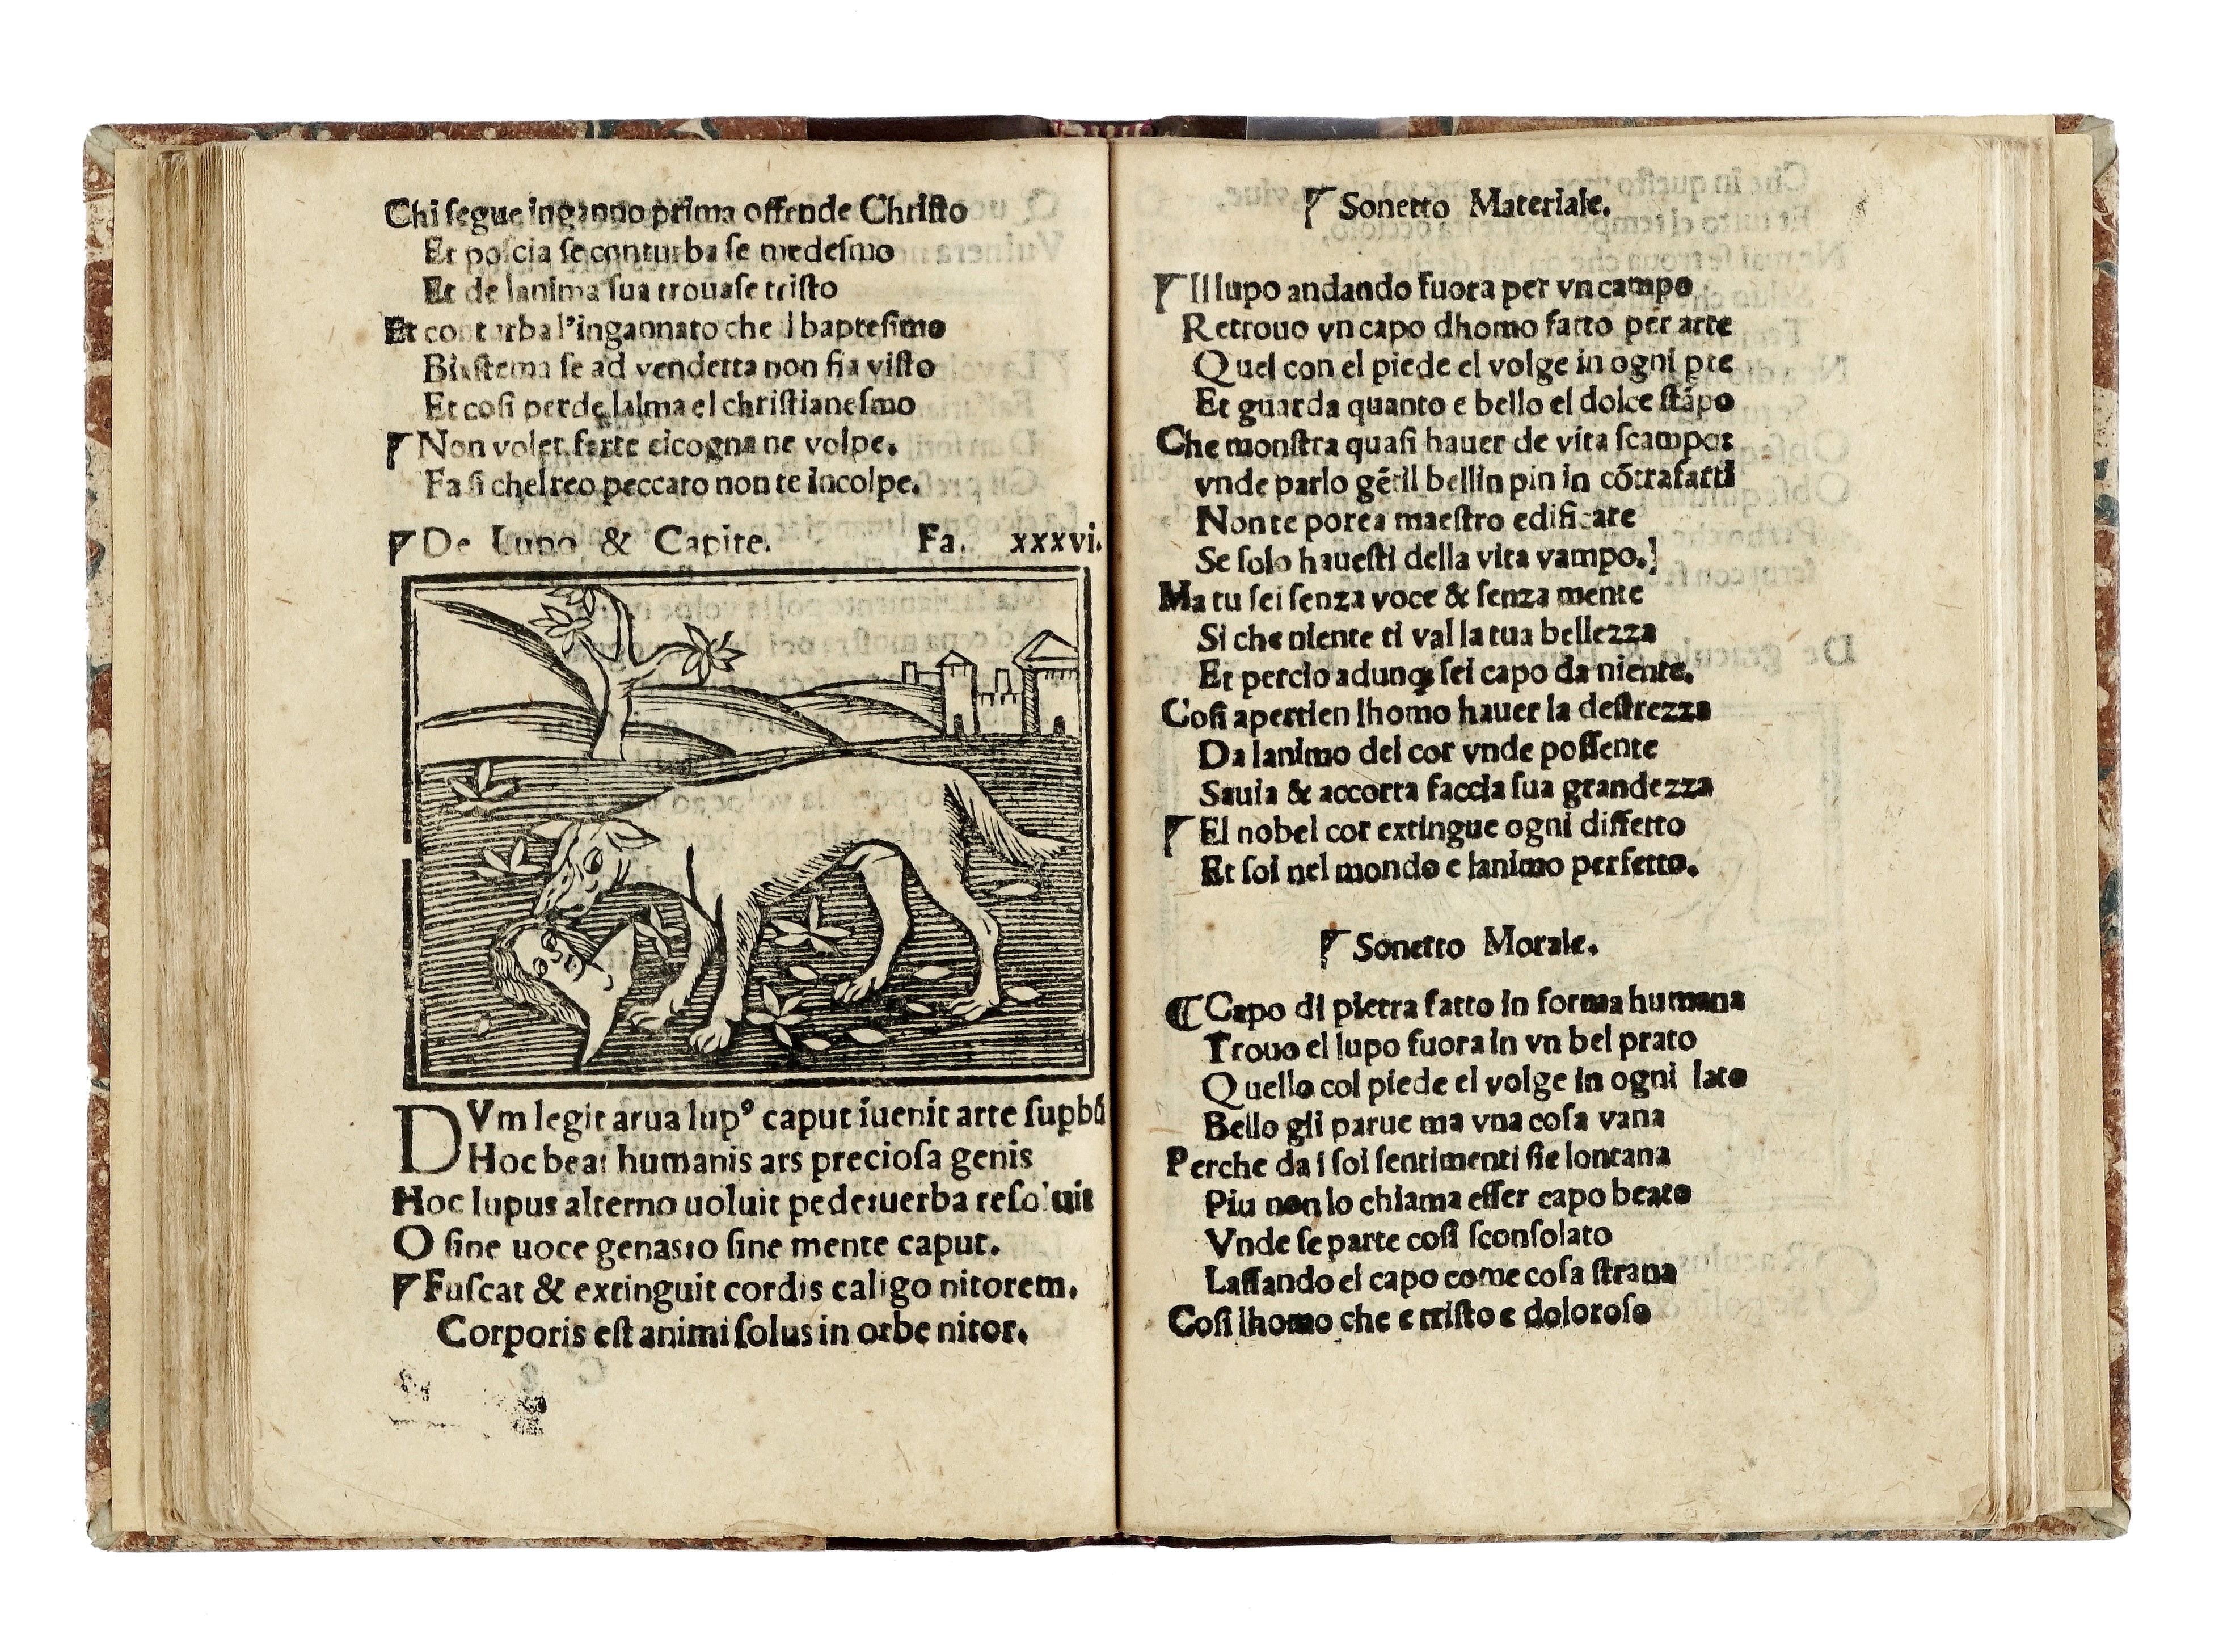 Chi ſegue inganno prima offende Chriſto
Et poſcia ſe conturba ſe medeſmo
Et de lanima ſua trouaſe triſto
Et conturba l'ingannato che il bapteſimo
Biaſtema ſe ad vendetta non fia viſto
Et coſi perde lalma el chriſtianeſmo
Non voler farte cicogna ne volpe.
Fa ſi chel reo peccato non te incolpe.
De Lupo & Capite. Fa. xxxvi.
DVm legit arua lupꝰ caput iuenit arte ſupbū
Hoc beat humanis ars precioſa genis
Hoc lupus alterno uoluit pede uerba reſoluit
O ſine uoce genas o ſine mente caput.
Fuſcat & extinguit cordis caligo nitorem.
Corporis eſt animi ſolus in orbe nitor.
Sonetto Materiale.
Il lupo andando fuora per vn campo
Retrouo vn capo dhomo fatto per arte
Quel con el piede el volge in ogni pte
Et guarda quanto e bello el dolce ſtāpo
Che monſtra quaſi hauer de vita ſcampo:
vnde parlo gētil bellin pin in cōtrafatti
Non te porea maeſtro edificare
Se ſolo haueſti della vita vampo.]
Ma tu ſei ſenza voce & ſenza mente
Si che niente ti val la tua bellezza
Et percio adunqꝫ ſei capo da niente.
Coſi apertien lhomo hauer la deſtrezza
Da lanimo del cor vnde poſſente
Sauia & accorta faccia ſua grandezza
El nobel cor extingue ogni diffetto
Et ſol nel mondo e lanimo perfetto.
Sonetto Morale.
Capo di pietra fatto in forma humana
Trouo el lupo fuora in vn bel prato
Quello col piede el volge in ogni lato
Bello gli parue ma vna coſa vana
Perche da i ſoi ſentimenti ſie lontana
Piu non lo chiama eſſer capo beato
Vnde ſe parte coſi ſconſolato
Laſſando el capo come coſa ſtrana
Coſi lhomo che e triſto e doloroſo